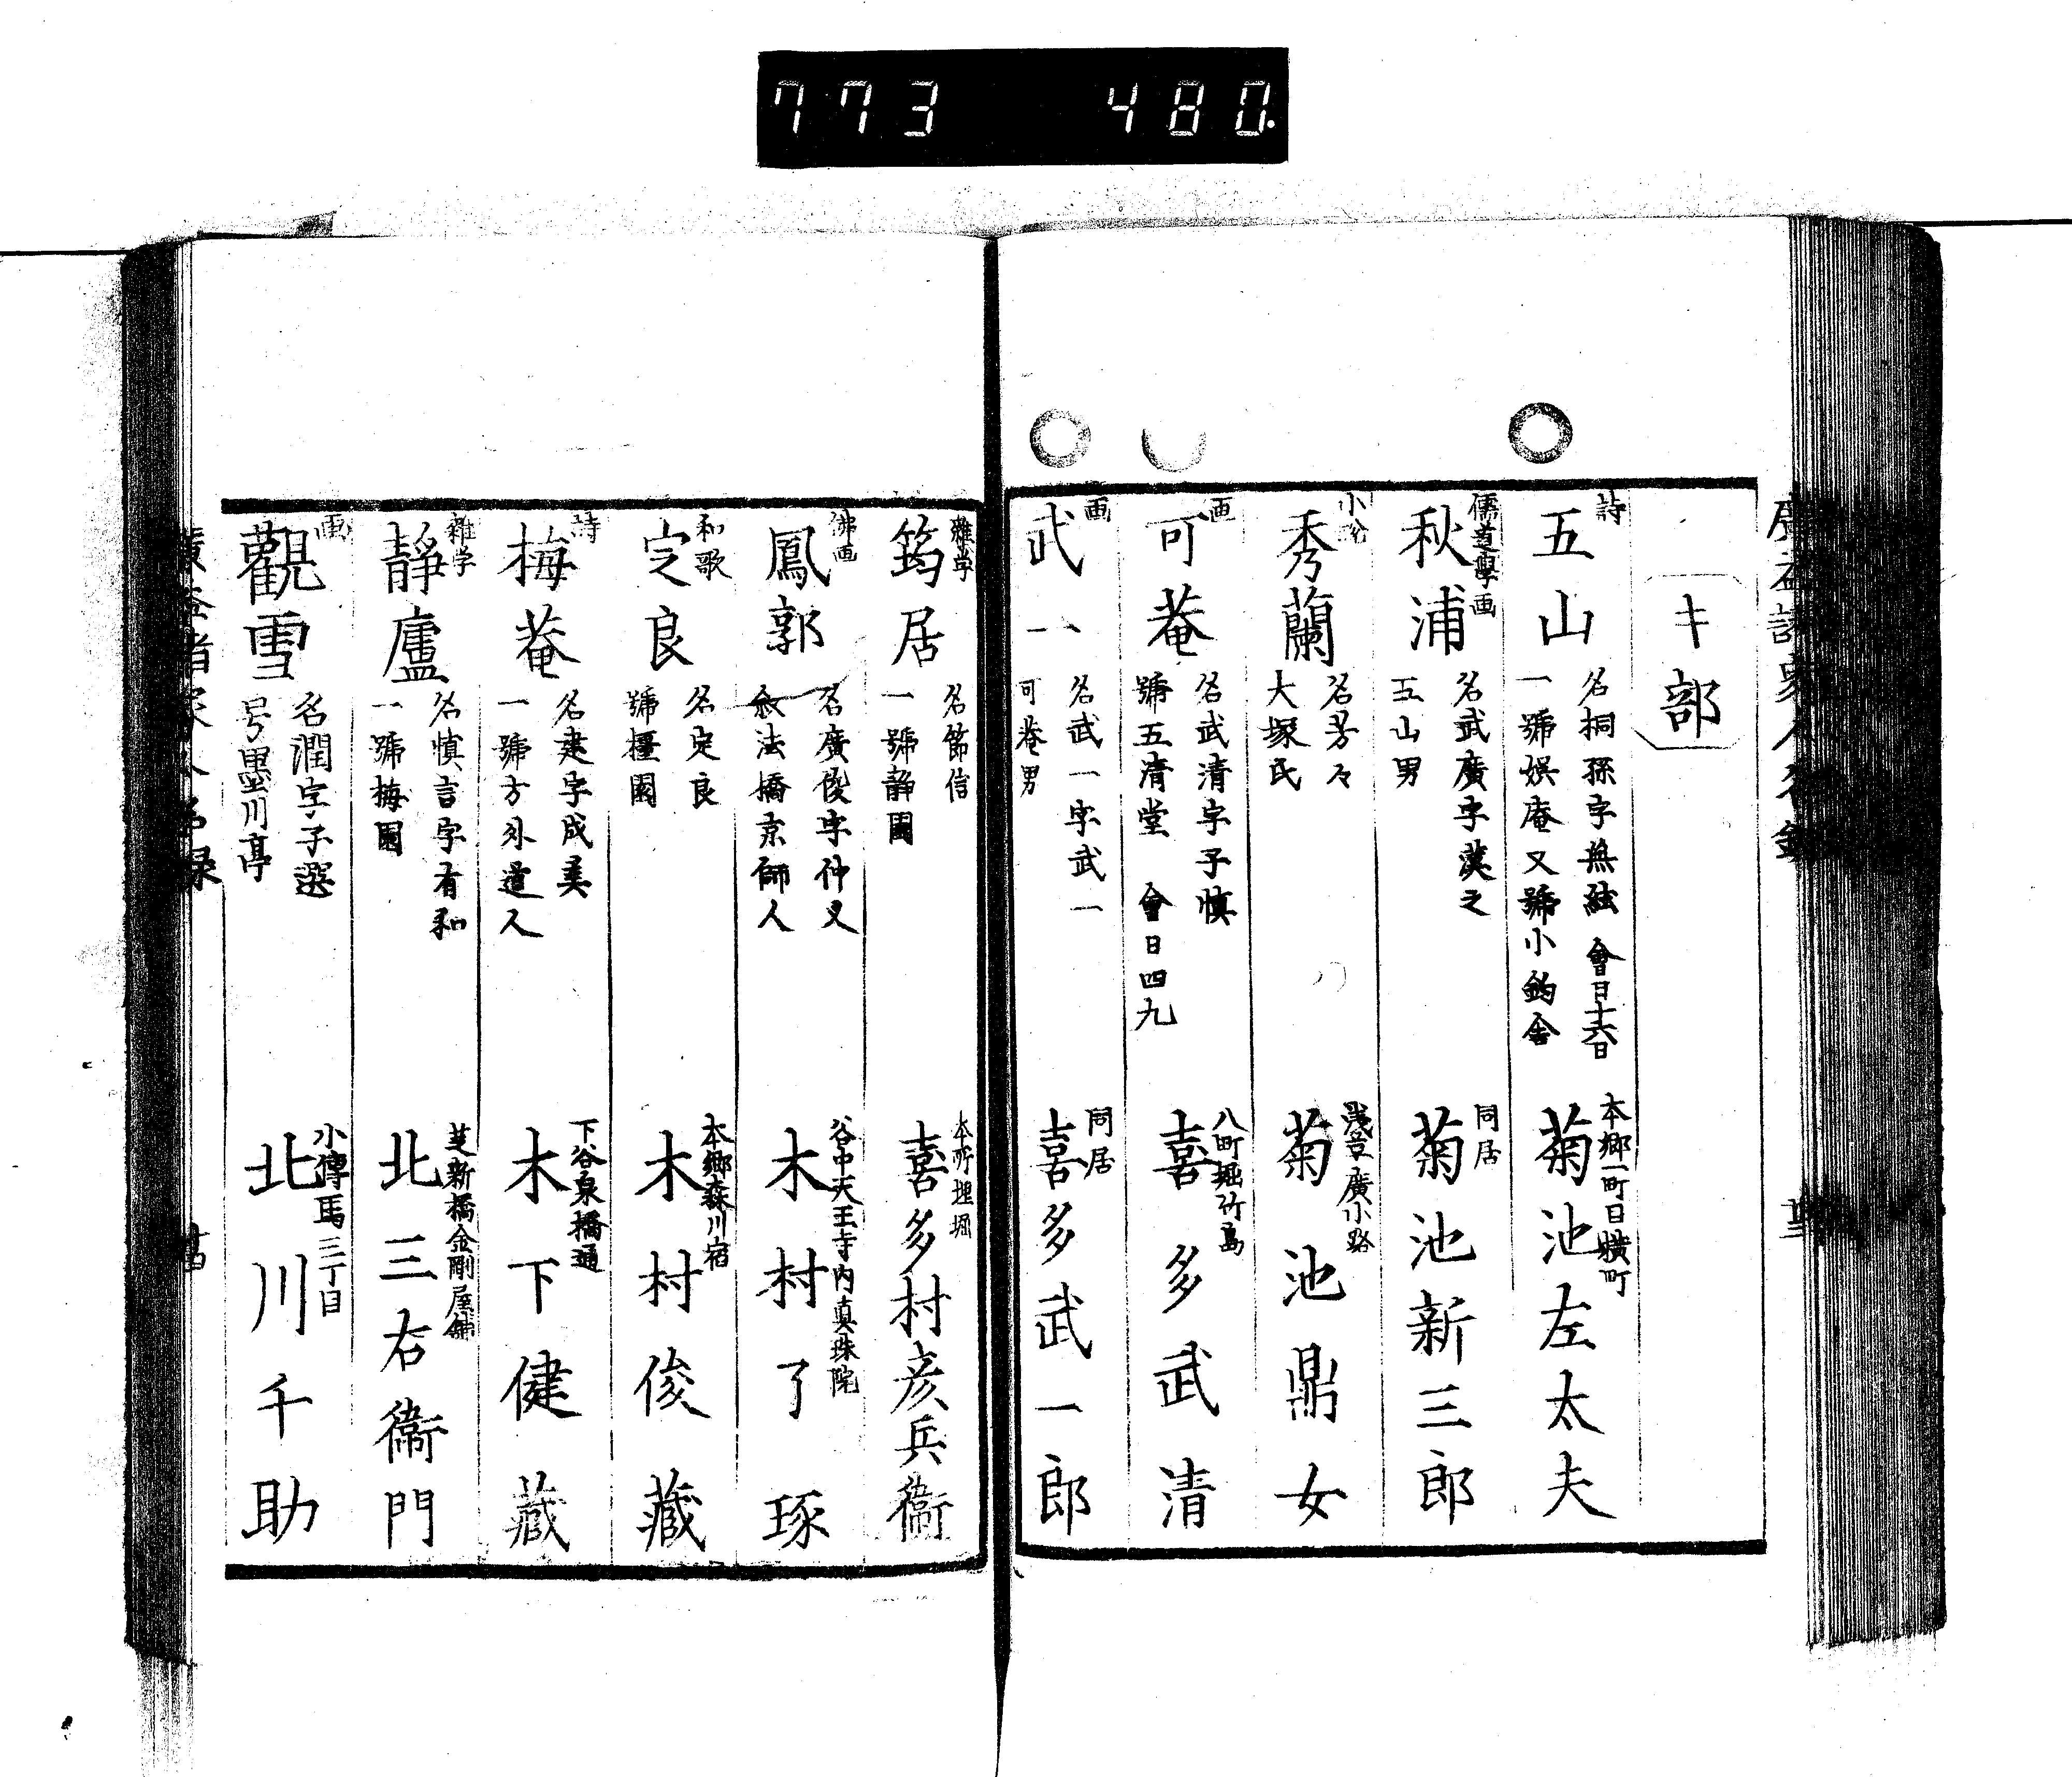 773 480.
キ部
詩
五山
名桐孫字無絃 會日十六日
一號娯庵又號小釣舎
本郷一町目横町
菊池左太夫
儒道學画
秋浦
名武廣字漢之
五山男
同居
菊池新三郎
秀蘭
名芳々
大塚氏
浅草廣小路
菊池鼎女
画
可菴
名武清字子慎
號五清堂 會日四九
八町堀竹島
喜多武清
画
武一
名武一字武一
可菴男
同居
喜多武一郎
雜学
筠居
名節信
一號静園
本所埋堀
喜多村彦兵衞
佛画
鳳郭
名廣俊字仲乂
叙法橋京師人
谷中天王寺内真珠院
木村了琢
和歌
定良
名定良
號橿園
本郷森川宿
木村俊藏
詩
梅菴
名建字成美
一號方外道人
下谷泉橋通
木下健藏
雜学
靜廬
名慎言字有和
一號梅園
芝新橋金剛屋舗
北三右衞門
画
觀雪
名潤字子選
号墨川亭
小傳馬三丁目
北川千助
廣益諸家人名録